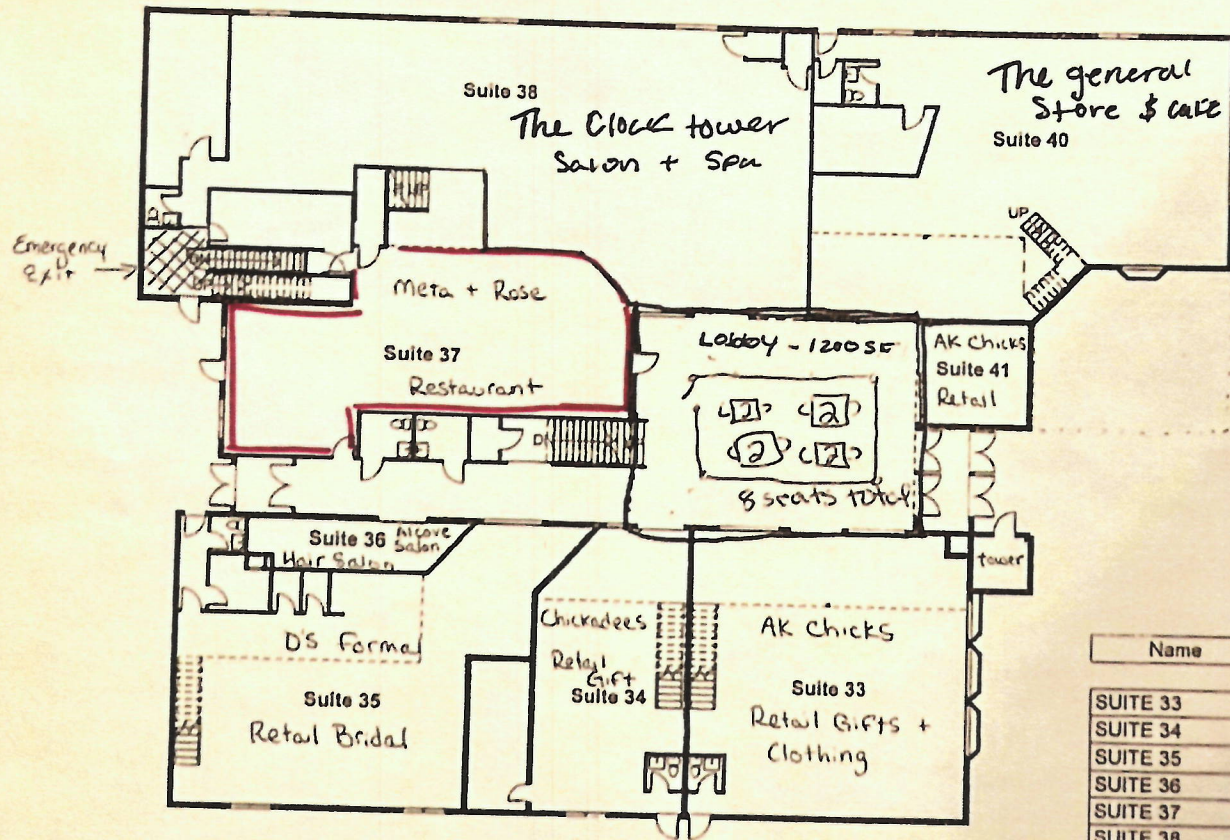 Suite 38
The Clock tower
Salon + Spa
The general
Store & cafe
Suite 40
UP
Emergency
Exit
Meta + Rose
Suite 37
Restaurant
Lobby - 1200 SF
AK Chicks
Suite 41
Retail
2 2
2 2
8 seats total
DN
Suite 36
Alcove
Salon
Hair Salon
tower
D'S Formal
Suite 35
Retail Bridal
Chickadees
Retail
Gift
Suite 34
AK Chicks
Suite 33
Retail Gifts +
Clothing
Name
SUITE 33
SUITE 34
SUITE 35
SUITE 36
SUITE 37
SUITE 38